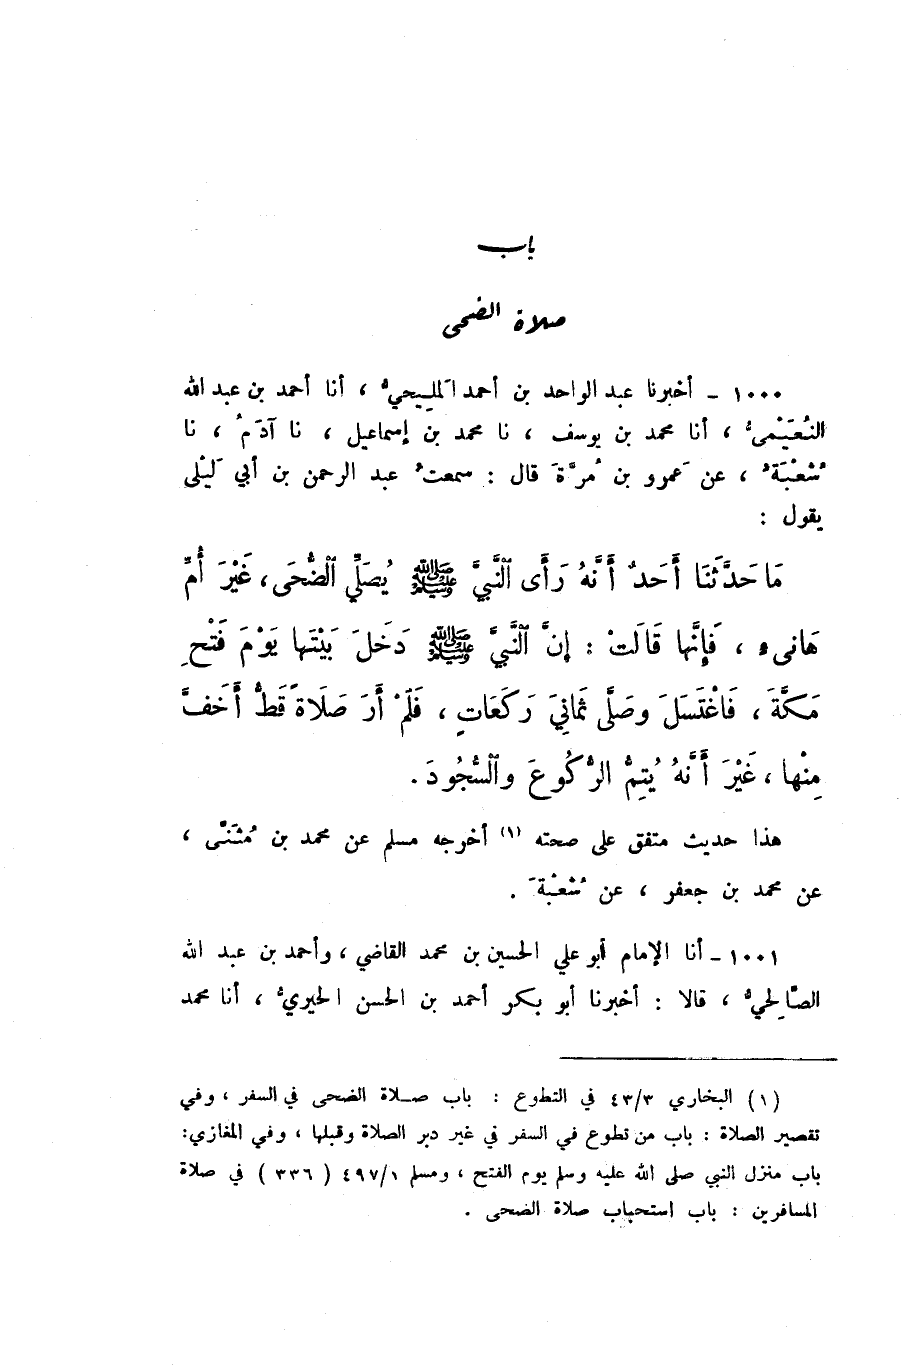 باب
صلاة الضحى
١٠٠٠ - أخبرنا عبد الواحد بن أحمد المَلِيحيُّ ، أنا أحمد بن عبد الله
النُعَيْمىُّ ، أنا محمد بن يوسف ، نا محمد بن إسماعيل ، نا آدَمُ ، نا
شُعْبَةُ ، عن عَمرو بن مُرَّةَ قال : سمعتُ عبد الرحمن بن أبي لَيْلى
يقول :
مَا حَدَّثَنَا أَحَدٌ أَنَّهُ رَأَى ٱلنَّبِيَّ ﷺ يُصَلِّي ٱلضُّحَى، غَيْرَ أُمِّ
هَانِىءٍ ، فَإِنَّها قَالَتْ : إِنَّ ٱلنَّبِيَّ ﷺ دَخَلَ بَيْتَها يَوْمَ فَتْحِ
مَكَّةَ ، فَاغْتَسَلَ وصَلَّى ثَمَانِيَ رَكَعَاتٍ ، فَلَمْ أَرَ صَلَاةً قَطُّ أَخَفَّ
مِنْها ، غَيْرَ أَنَّهُ يُتِمُّ الرُّكُوعَ وٱلسُّجُودَ .
هذا حديث متفق على صحته (١) أخرجه مسلم عن محمد بن مُثَنَّى ،
عن محمد بن جعفر ، عن شُعْبةَ .
١٠٠١ - أنا الإمام أبو علي الحسين بن محمد القاضي ، وأحمد بن عبد الله
الصَّالِحيُّ ، قالا : أخبرنا أبو بكر أحمد بن الحسن الحيريُّ ، أنا محمد
(١) البخاري ٤٣/٣ في التطوع : باب صلاة الضحى في السفر ، وفي
تقصير الصلاة : باب من تطوع في السفر في غير دبر الصلاة وقبلها ، وفي المغازي:
باب منزل النبي صلى الله عليه وسلم يوم الفتح ، ومسلم ٤٩٧/١ ( ٣٣٦ ) في صلاة
المسافرين : باب استحباب صلاة الضحى .